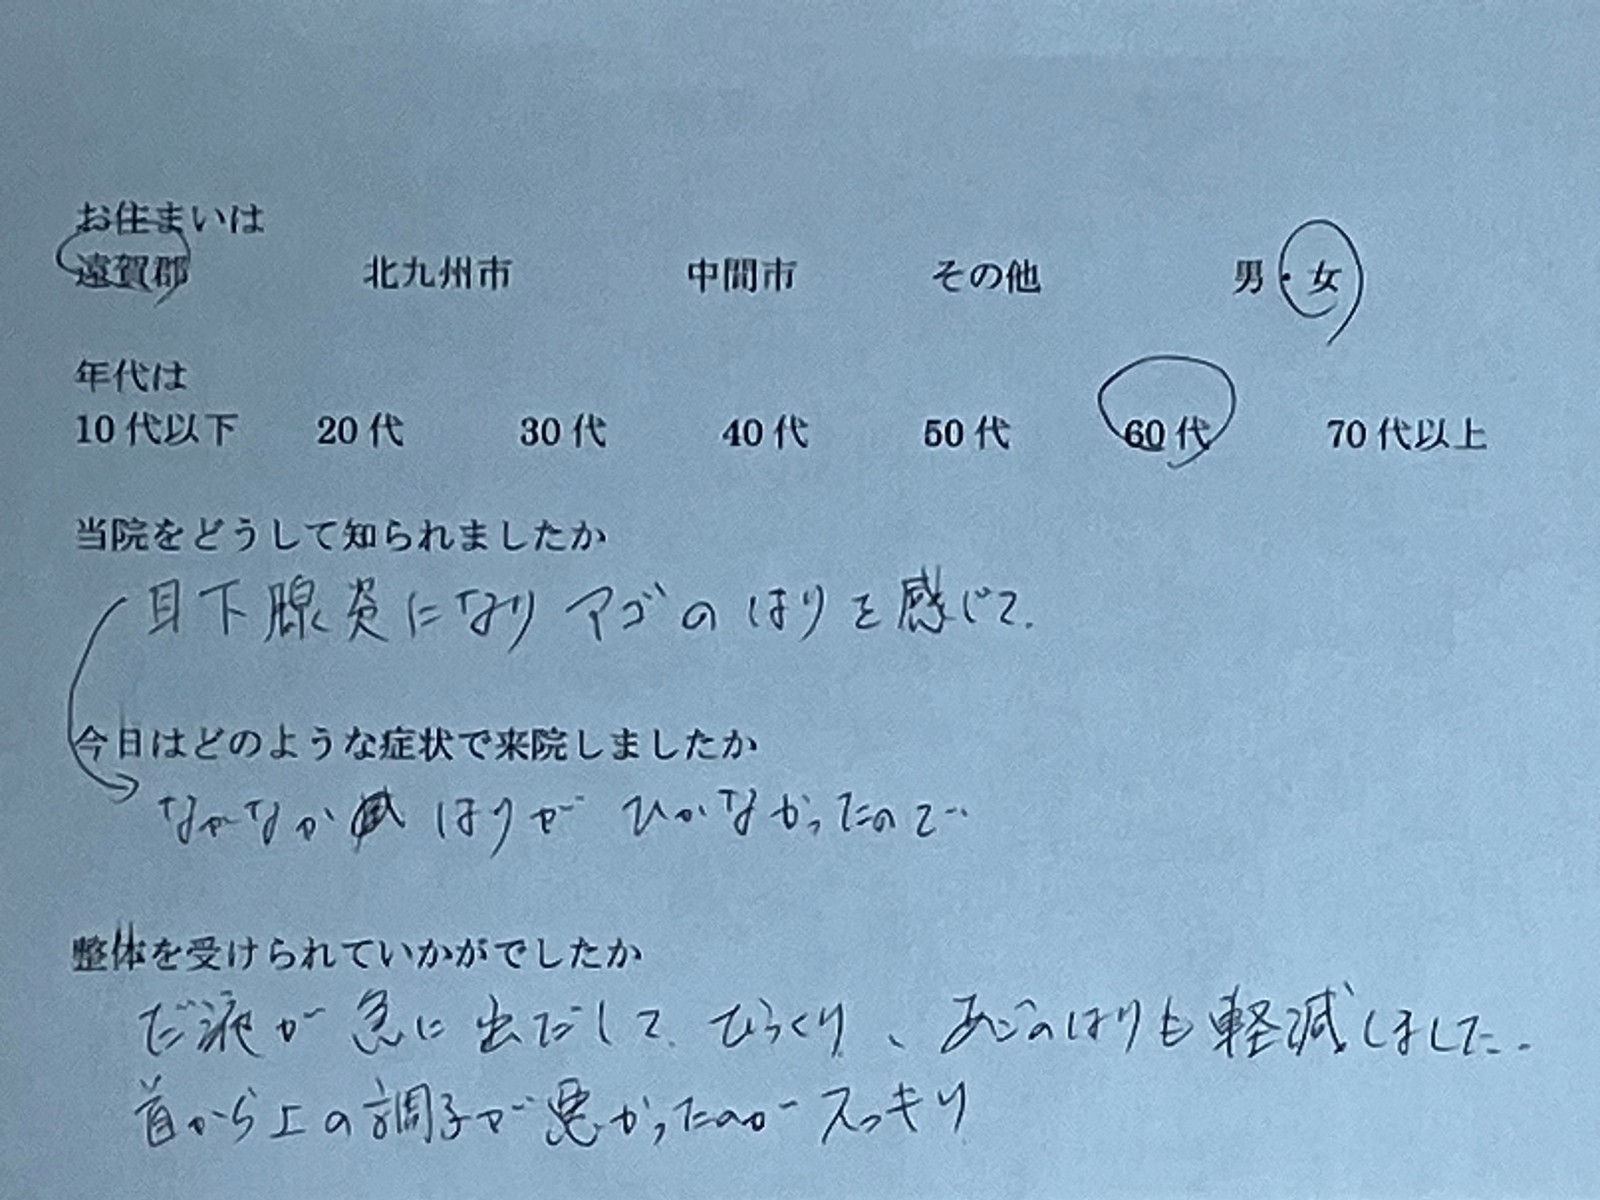 お住まいは
遠賀郡 北九州市 中間市 その他 男・女
年代は
10代以下 20代 30代 40代 50代 60代 70代以上
当院をどうして知られましたか
耳下腺炎になり アゴの はりを感じて.
今日はどのような症状で来院しましたか
なかなか はりが ひかなかったので..
整体を受けられていかがでしたか
だ液が 急に 出だして びっくり、あごのはりも軽減しました.
首から上の調子が悪かったのが スッキリ